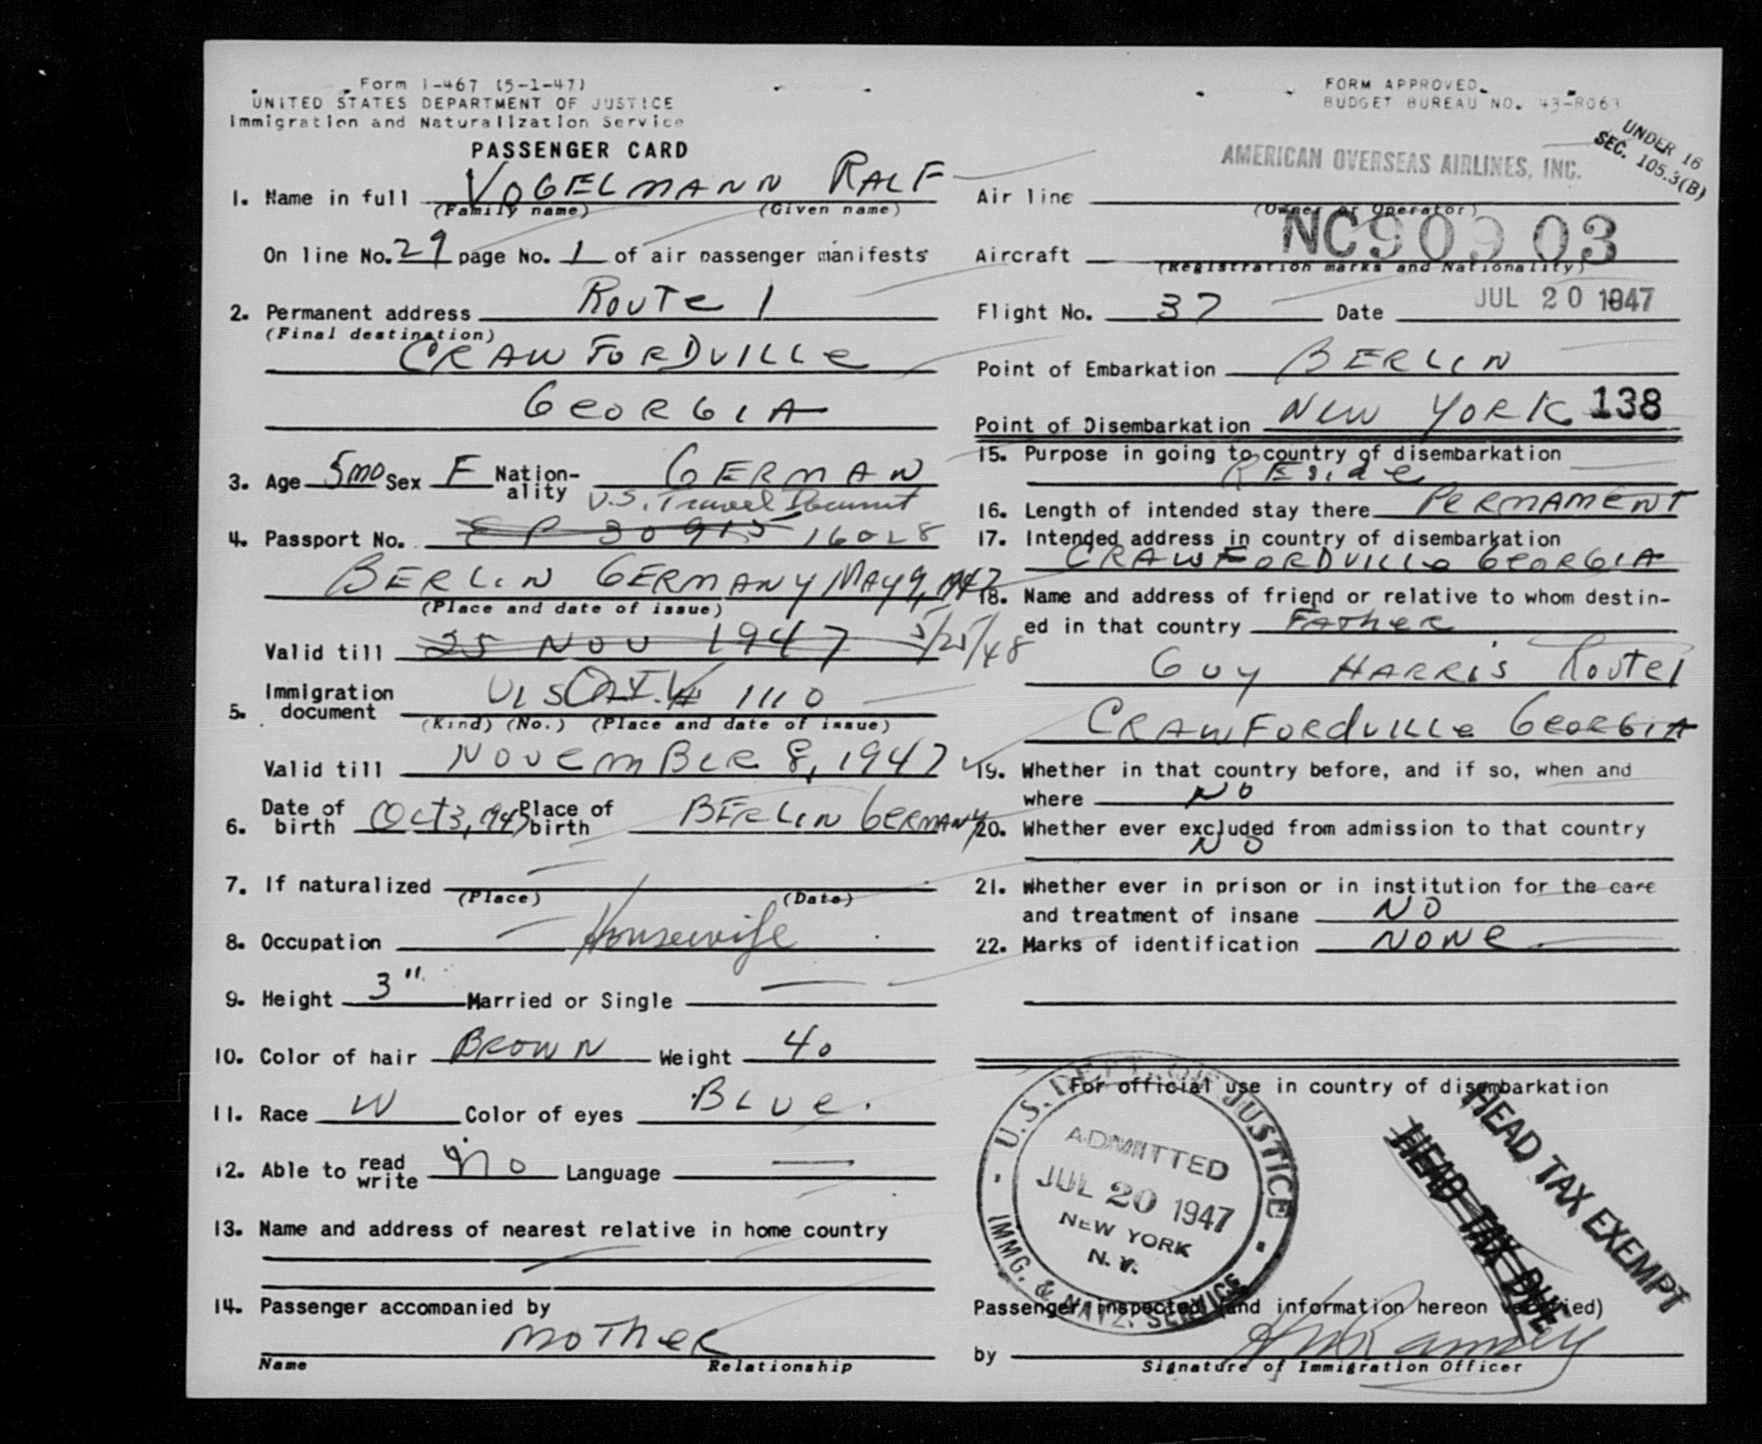 Form I-467 (5-1-47)
UNITED STATES DEPARTMENT OF JUSTICE
Immigration and Naturalization Service
PASSENGER CARD
1. Name in full VOGELMANN RALF
(Family name) (Given name)
On line No. 29 page No. 1 of air passenger manifests
2. Permanent address Route 1
(Final destination)
CRAWFORDVILLe
GeORGIA
3. Age 5mo Sex F Nation-ality GERMAN
U.S. Travel Document
4. Passport No. 30915 16028
BERLIN GERMANY MAY 9, 1947
(Place and date of issue)
Valid till 25 NOV 1947 5/25/48
5. Immigration document # 1110
(Kind) (No.) (Place and date of issue)
Valid till NOVemBeR 8, 1947
6. Date of birth Oct 3, 1945 Place of birth BERLIN GERMANY
7. If naturalized —
(Place) (Date)
8. Occupation — Housewife
9. Height 3" Married or Single —
10. Color of hair BROWN Weight 40
11. Race W Color of eyes BLUe.
12. Able to read write No Language —
13. Name and address of nearest relative in home country
—
14. Passenger accompanied by
MOTHeR
Name Relationship
FORM APPROVED.
BUDGET BUREAU NO. 43-R063
UNDER 16
SEC. 105.3(B)
AMERICAN OVERSEAS AIRLINES, INC.
Air line
(Owner or Operator)
Aircraft NC90903
(Registration marks and Nationality)
Flight No. 37 Date JUL 20 1947
Point of Embarkation BERLIN
Point of Disembarkation NEW YORK 138
15. Purpose in going to country of disembarkation
REside
16. Length of intended stay there PeRMAMENT
17. Intended address in country of disembarkation
CRAWFORDVILLe GeORGIA
18. Name and address of friend or relative to whom destin-
ed in that country FATHeR
GUY HARRiS Route 1
CRAWFORdVILLe GeORGIA
19. Whether in that country before, and if so, when and
where NO
20. Whether ever excluded from admission to that country
NO
21. Whether ever in prison or in institution for the care
and treatment of insane NO
22. Marks of identification NONe
For official use in country of disembarkation
U.S. DEPT. OF JUSTICE
ADMITTED
JUL 20 1947
NEW YORK
N. Y.
IMMG. & NATZ. SERVICE
HEAD TAX EXEMPT
HEAD TAX DUE
Passenger inspected (and information hereon verified)
by
Signature of Immigration Officer